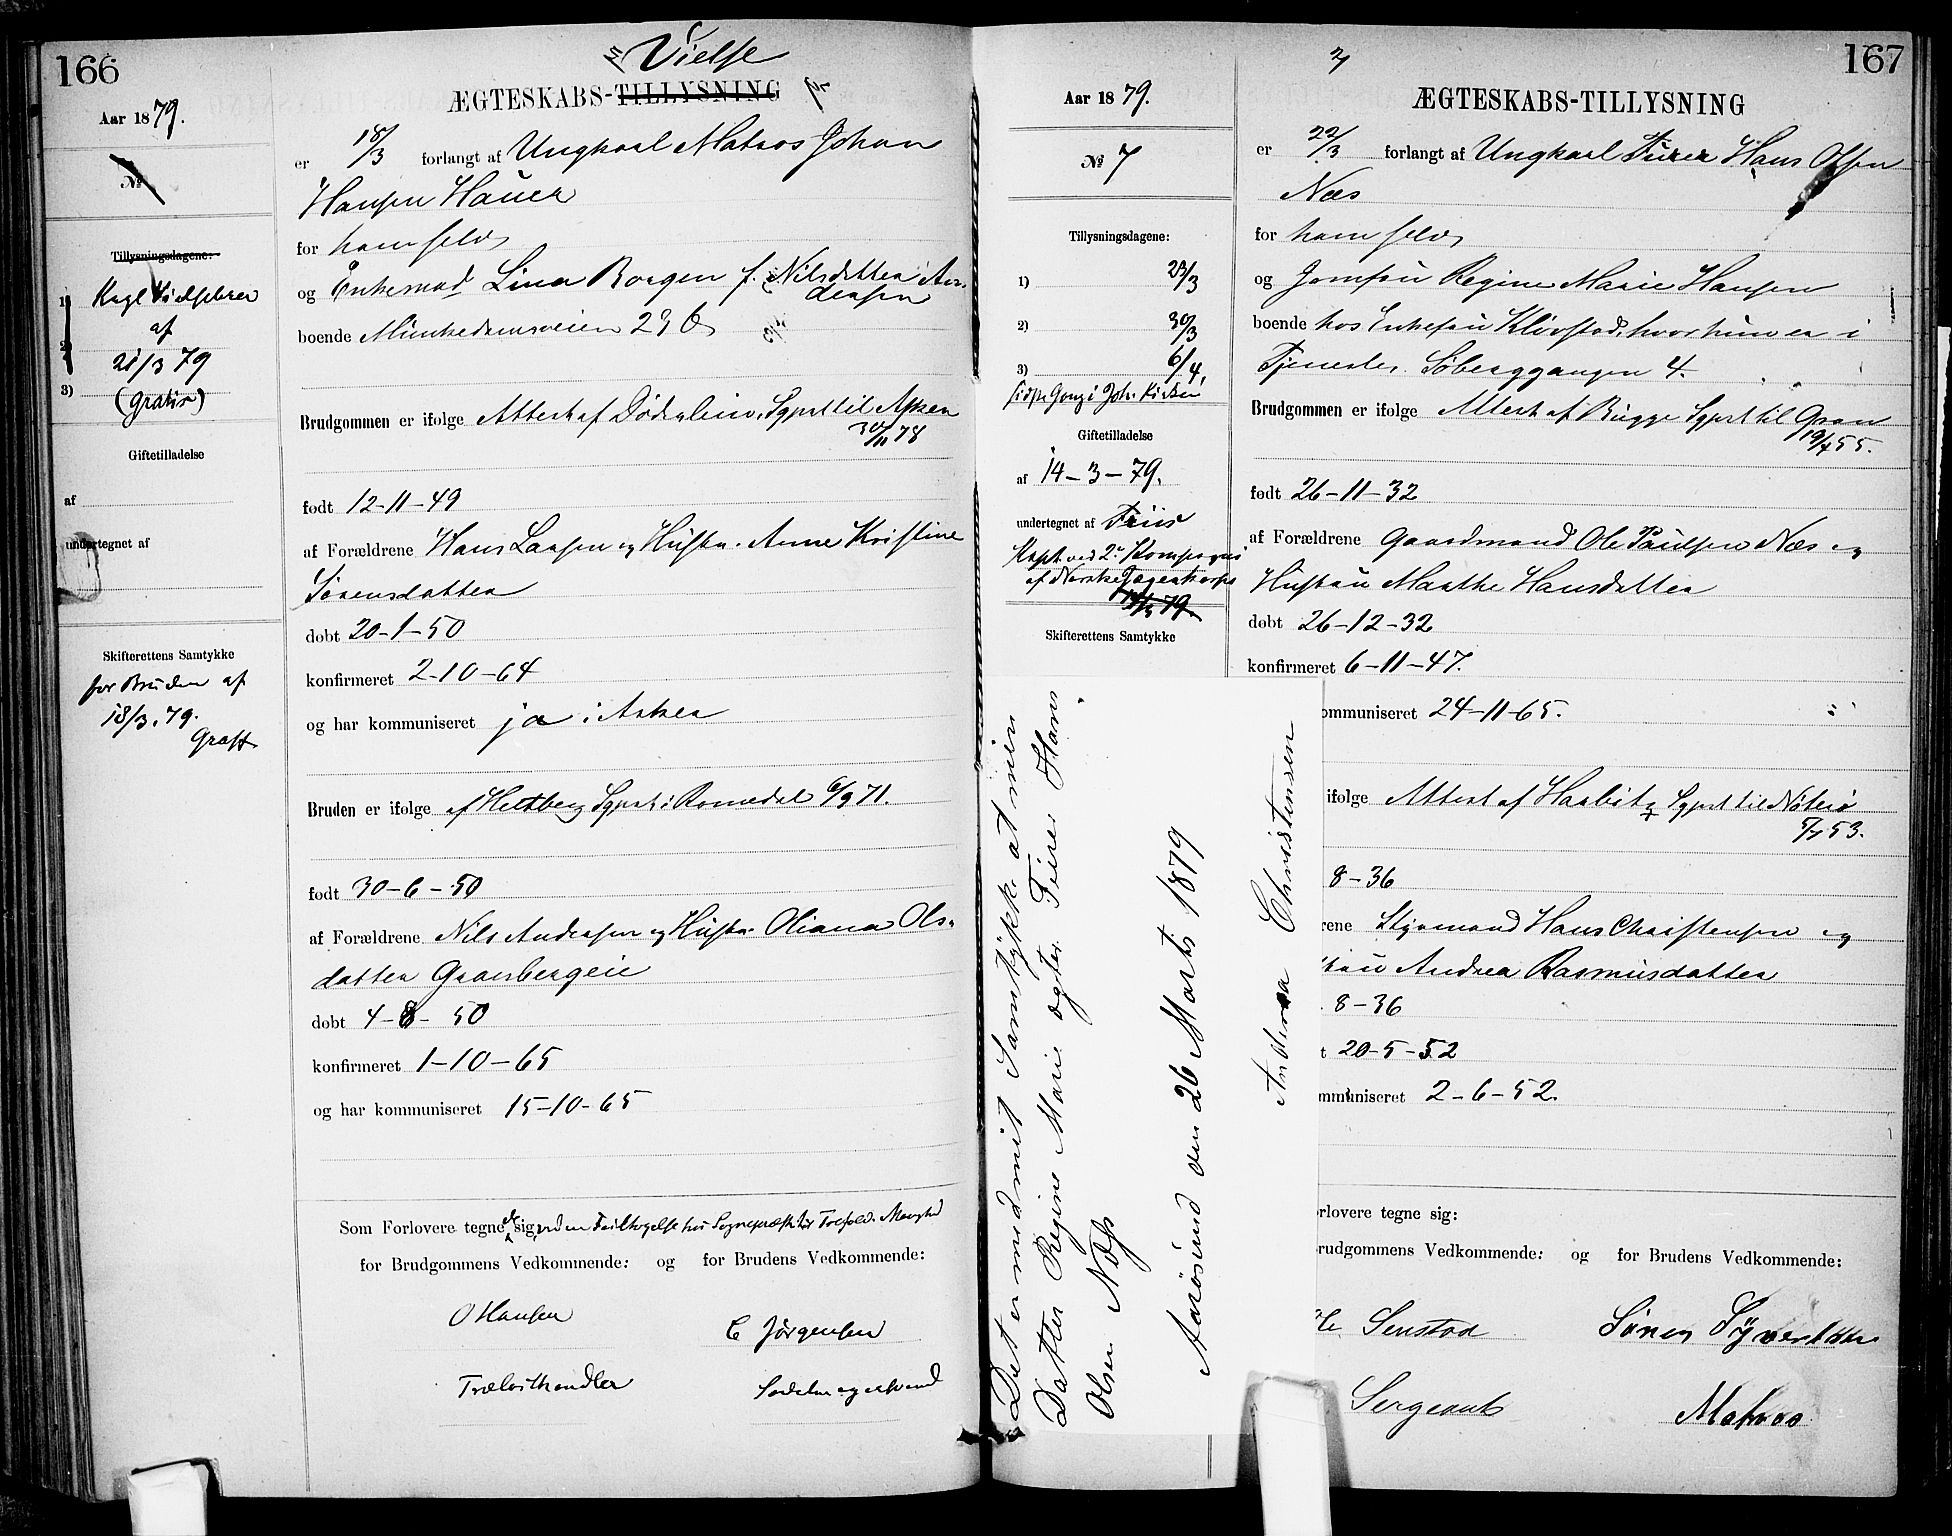 166
Aar 1879.
№
Tillysningsdagene:
1)
Kngl Vielsesbrev
af
2)
21/3 79
3)
(gratis)
Giftetilladelse
af
undertegnet af
Skifterettens Samtykke
for Bruden af
18/3. 79.
Vielse
ÆGTESKABS-TILLYSNING
er 18/3 forlangt af Ungkarl Matros Johan
Hansen Hauer
for ham selv
og Enkemad. Lina Borgen f. Nilsdatter Andersen
boende Munkedamsveien 29
Brudgommen er ifølge Attest af Døderlein, Sgprst til Asker
30/11 78
født 12-11-49
af Forældrene Hans Larsen og Hustr. Anne Kristine
Sørensdatter
døbt 20-1-50
konfirmeret 2-10-64
og har kommuniseret ja i Asker
Bruden er ifølge af Heltberg Sgprst i Romedal 6/9 71.
født 30-6-50
af Forældrene Nils Andersen og Hustr. Oliana Ols-
datter Graasbergeie
døbt 4-8-50
konfirmeret 1-10-65
og har kommuniseret 15-10-65
Som Forlovere tegnede sig
for Brudgommens Vedkommende: og for Brudens Vedkommende:
O Hansen C Jørgensen
Trælasthandler
167
Aar 1879.
№ 7
Tillysningsdagene:
1) 23/3
2) 30/3
3) 6/4
sidste Gang i Joh. Kirken
Giftetilladelse
af 14-3-79.
undertegnet af Friis
Kapt. ved 2. Kompagni
af Norske Jægerkorps
Skifterettens Samtykke
ÆGTESKABS-TILLYSNING
er 22/3 forlangt af Ungkarl Furer Hans Olsen
Næs
for ham selv
og Jomfru Regine Marie Hansen
boende hos Enkefru Kløvstad, hvor hun er i
Tjeneste. Søberggangen 4.
Brudgommen er ifølge Attest af Bugge Sgprst til Gran
19/7 55.
født 26-11-32
af Forældrene Gaardmand Ole Paulsen Næs og
Hustru Marthe Hansdatter
døbt 26-12-32
konfirmeret 6-11-47.
ommuniseret 24-11-65.
ifølge Attest af Haslutz Sgprst til Nøterø
5/7 53.
8-36
rene Styrmand Hans Christensen og
tru Andrea Rasmusdatter
. 8-36
t 20-5-52
mmuniseret 2-6-52.
rlovere tegne sig:
rudgommens Vedkommende: og for Brudens Vedkommende:
Senstad Søren Syvertsen
Sergeant Matros
Det er med mit Samtykke at min
Datter Regine Marie ægter Furer Hans
Olsen Næss
Aarøsund den 26 Marts 1879
Anderea Christensen